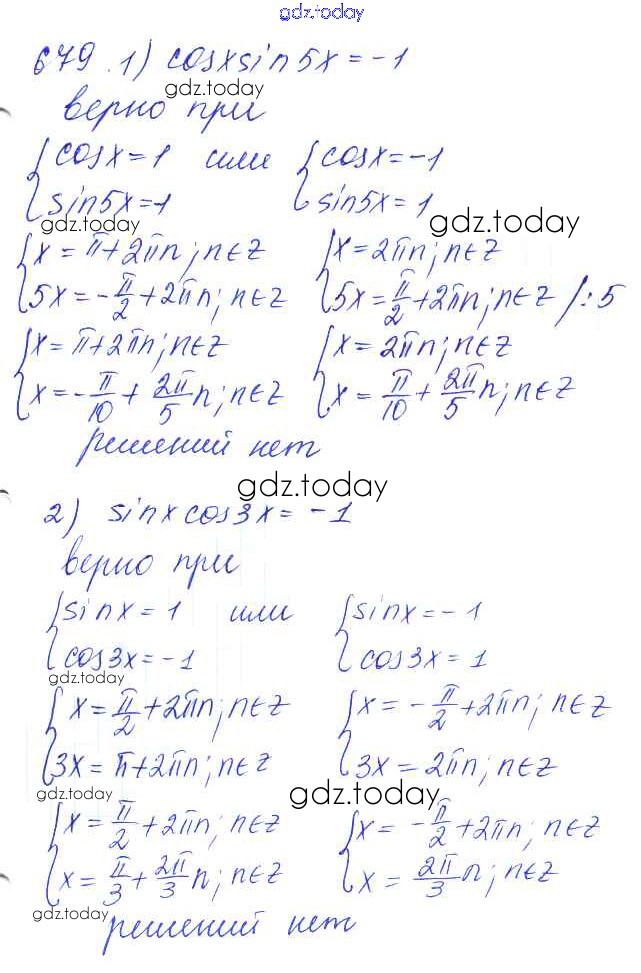 gdz.today
679. 1) cosxsin5x = -1
gdz.today
верно при
{cosx = 1 или {cosx = -1
{sin5x = -1 {sin5x = 1
gdz.today gdz.today
{x = π+2πn; n∈Z {x = 2πn; n∈Z
{5x = -π/2+2πn; n∈Z {5x = π/2+2πn; n∈Z /:5
{x = π+2πn; n∈Z {x = 2πn; n∈Z
{x = -π/10 + 2π/5 n; n∈Z {x = π/10 + 2π/5 n; n∈Z
решений нет
gdz.today
2) sinxcos3x = -1
верно при
{sinx = 1 или {sinx = -1
{cos3x = -1 {cos3x = 1
gdz.today
{x = π/2+2πn; n∈Z {x = -π/2+2πn; n∈Z
{3x = π+2πn; n∈Z {3x = 2πn; n∈Z
gdz.today gdz.today
{x = π/2+2πn; n∈Z {x = -π/2+2πn; n∈Z
{x = π/3+2π/3 n; n∈Z {x = 2π/3 n; n∈Z
gdz.today
решений нет